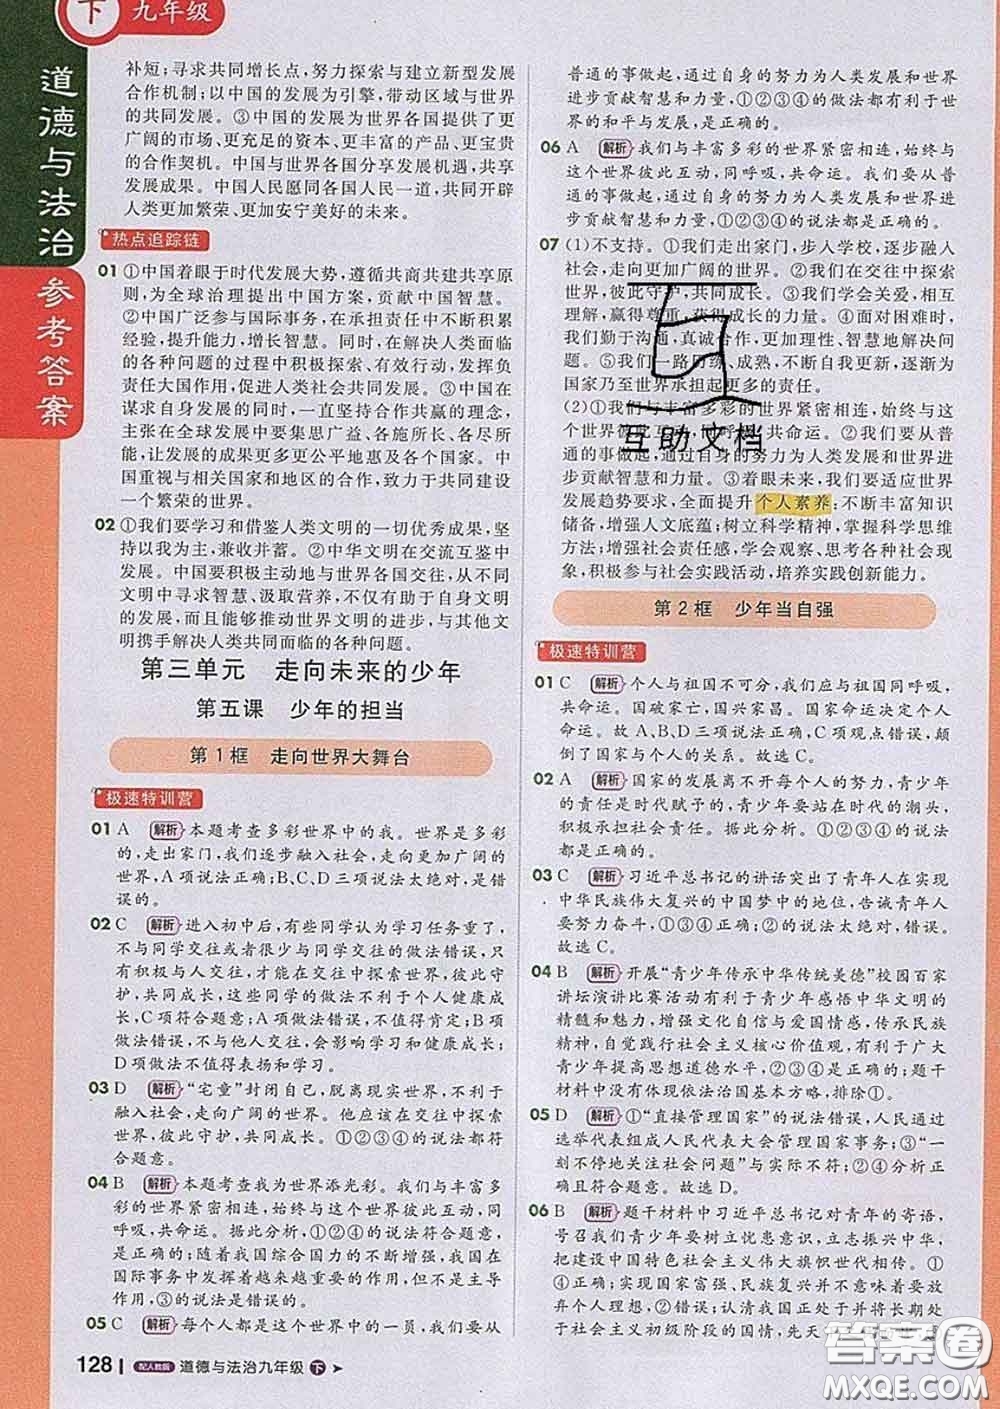 下 九年级
道德与法治
参考答案
补短;寻求共同增长点,努力探索与建立新型发展
合作机制;以中国的发展为引擎,带动区域与世界
的共同发展。③中国的发展为世界各国提供了更
广阔的市场、更充足的资本、更丰富的产品、更宝贵
的合作契机。中国与世界各国分享发展机遇,共享
发展成果。中国人民愿同各国人民一道,共同开辟
人类更加繁荣、更加安宁美好的未来。
热点追踪链
01 ①中国着眼于时代发展大势,遵循共商共建共享原
则,为全球治理提出中国方案,贡献中国智慧。
②中国广泛参与国际事务,在承担责任中不断积累
经验,提升能力,增长智慧。同时,在解决人类面临
的各种问题的过程中积极探索、有效行动,发挥负
责任大国作用,促进人类社会共同发展。③中国在
谋求自身发展的同时,一直坚持合作共赢的理念,
主张在全球发展中要集思广益、各施所长、各尽所
能,让发展的成果更多更公平地惠及各方。同时,中
国重视与相关国家和地区的合作,共同支持和建设
一个繁荣的世界。
02 ①我们要学习和借鉴人类文明的一切优秀成果,坚
持以我为主、兼收并蓄。②中华文明在交流互鉴中
发展。中国要积极主动地与世界各国交往,从不同
文明中寻求智慧、汲取营养,不仅有助于自身文明
的发展,而且能够推动世界文明的进步,与其他文
明携手解决人类共同面临的各种问题。
第三单元 走向未来的少年
第五课 少年的担当
第1框 走向世界大舞台
极速特训营
01 A 解析 本题考查多彩世界中的我。世界是多彩
的,走出家门,我们逐步融入社会,走向更加广阔的
世界,A项说法正确;B、C、D三项说法太绝对,是错
误的。
02 C 解析 进入初中后,有些同学认为学习任务重了,
不与同学交往或者很少与同学交往的做法错误,实
际上,我们在交往中探索世界,彼此守护,
共同成长,这些同学的做法不利于个人健康成长,
C项符合题意;A项做法错误,不值得肯定;B项做
法错误,不与他人交往,会影响学习和共同成长;
D项做法错误,不值得同情和学习。
03 D 解析 “宅童”封闭自己,脱离现实世界,不利于
融入社会,走向广阔的世界。他应该在交往中探索
世界,彼此守护,共同成长。①②③④的说法都符
合题意。
04 B 解析 本题考查我为世界添光彩。我们与丰富多
彩的世界紧密相连,始终与这个世界彼此互动,同
呼吸,共命运。据此分析,①②④的说法都是正
确的;随着我国综合国力的不断增强,我国在
国际事务中发挥着越来越重要的作用,但不是主导
作用,③的说法是错误的。
05 C 解析 每个人都是这个世界中的一员,我们要从
普通的事做起,通过自身的努力为人类发展和世界
进步贡献智慧和力量,①②③④的做法都有利于世
界的和平与发展,是正确的。
06 A 解析 我们与丰富多彩的世界紧密相连,始终与
这个世界彼此互动,同呼吸,共命运。我们要从普
通的事做起,通过自身的努力为人类发展和世界进
步贡献智慧和力量,①②③④的说法都是正确的。
07 (1)不支持。①我们走出家门,步入学校,逐步融入
社会,走向更加广阔的世界。②我们在交往中探索
世界,彼此守护,共同成长。③我们学会关爱,相互
理解,赢得尊重,获得成长的力量。④面对困难时,
我们勤于沟通,真诚合作,更加理性、智慧地解决问
题。⑤我们一路历练、成熟,不断自我更新,逐渐为
国家乃至世界承担起更多的责任。
(2)①我们与丰富多彩的世界紧密相连,始终与这
个世界彼此互动,同呼吸,共命运。②我们要从普
通的事做起,通过自身的努力为人类发展和世界进
步贡献智慧和力量。③着眼未来,我们要适应世界
发展趋势要求,全面提升个人素养:不断丰富知识
储备,增强人文底蕴;树立科学精神,掌握科学思维
方法;增强社会责任感,学会观察、思考各种社会现
象,积极参与社会实践活动,培养实践创新能力。
第2框 少年当自强
极速特训营
01 C 解析 个人与祖国不可分,我们应与祖国同呼吸,
共命运。国破家亡,国兴家昌。国家命运决定个人
命运。故A、B、D三项说法正确,C项观点错误,颠
倒了国家与个人的关系。故选C。
02 A 解析 国家的发展离不开每个人的努力,青少年
的责任是时代赋予的,青少年要站在时代的潮头,
积极承担社会责任。据此分析。①②③④的说法
都正确。
03 C 解析 习近平总书记的讲话突出了青年人在实现
中华民族伟大复兴的中国梦中的地位,告诫青年人
要努力奋斗,①③④说法正确。②说法太绝对。
故选C。
04 B 解析 开展“青少年传承中华传统美德”校园百家
讲坛演讲比赛活动有利于青少年感悟中华文明的
精髓和魅力,增强文化自信与爱国情感,传承民族
精神,自觉践行社会主义核心价值观,有利于广大
青少年提高思想道德水平,②③④是正确的;题干
材料中没有体现依法治国基本方略,排除①。
05 D 解析 ①“直接管理国家”的说法错误,人民通过
选举代表组成人民代表大会管理国家事务;③“一
刻不停地关注社会问题”与实际不符;②④分析正
确且符合题意。故选D。
06 B 解析 题干材料中习近平总书记对青年的寄语,
号召我们青少年要树立忧患意识,立志振兴中华,
把建设中国特色社会主义伟大旗帜世代相传。①
④符合题意;实现国家富强、民族复兴并不意味着要放
弃个人理想,②错误;认清我国正处于并将长期处于
社会主义初级阶段的国情,先天
互助文档
128 配人教版 道德与法治九年级 下
答案圈
MXQE.COM